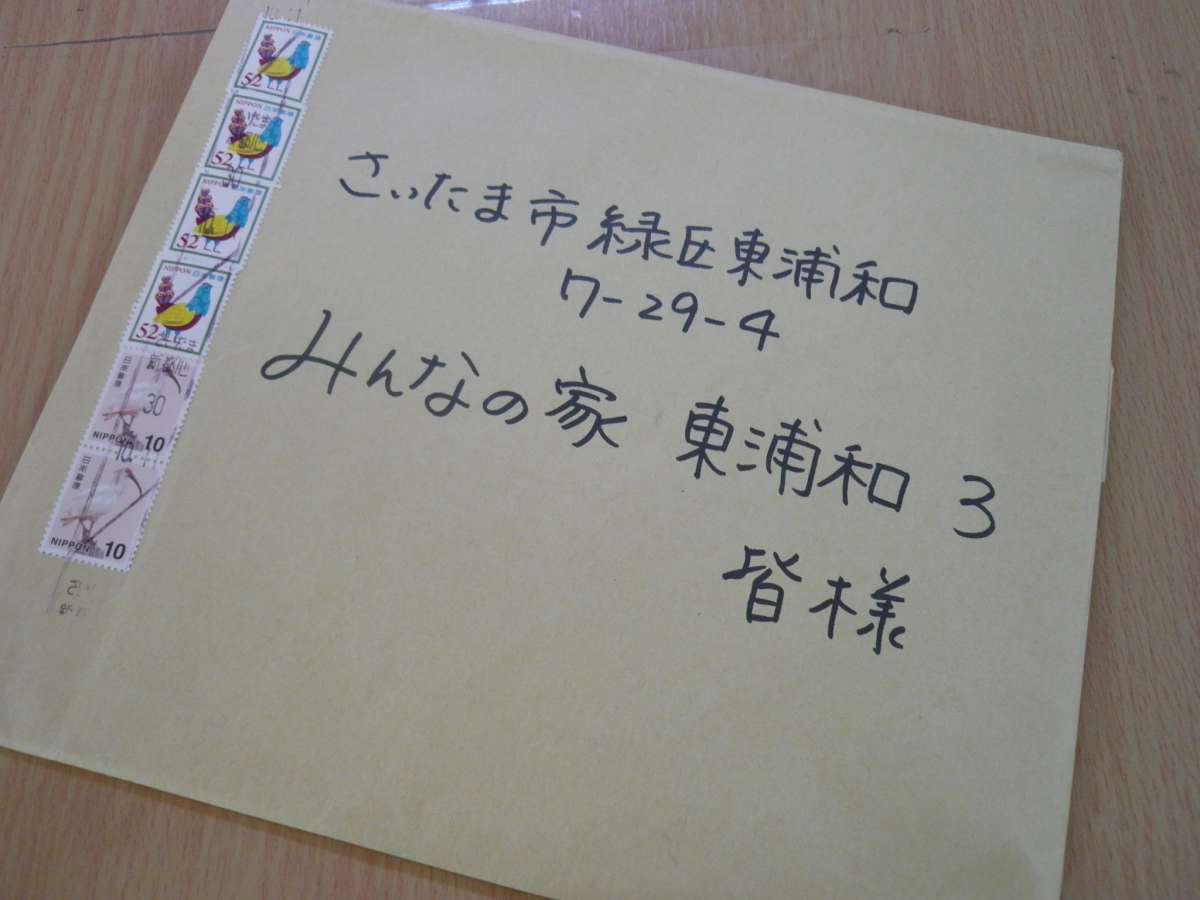 さいたま市緑区東浦和
7-29-4
みんなの家 東浦和 3
皆様
NIPPON 日本郵便
52
NIPPON 日本郵便
52
NIPPON 日本郵便
52
NIPPON 日本郵便
52
日本郵便
NIPPON 10
日本郵便
NIPPON 10
新都心
30